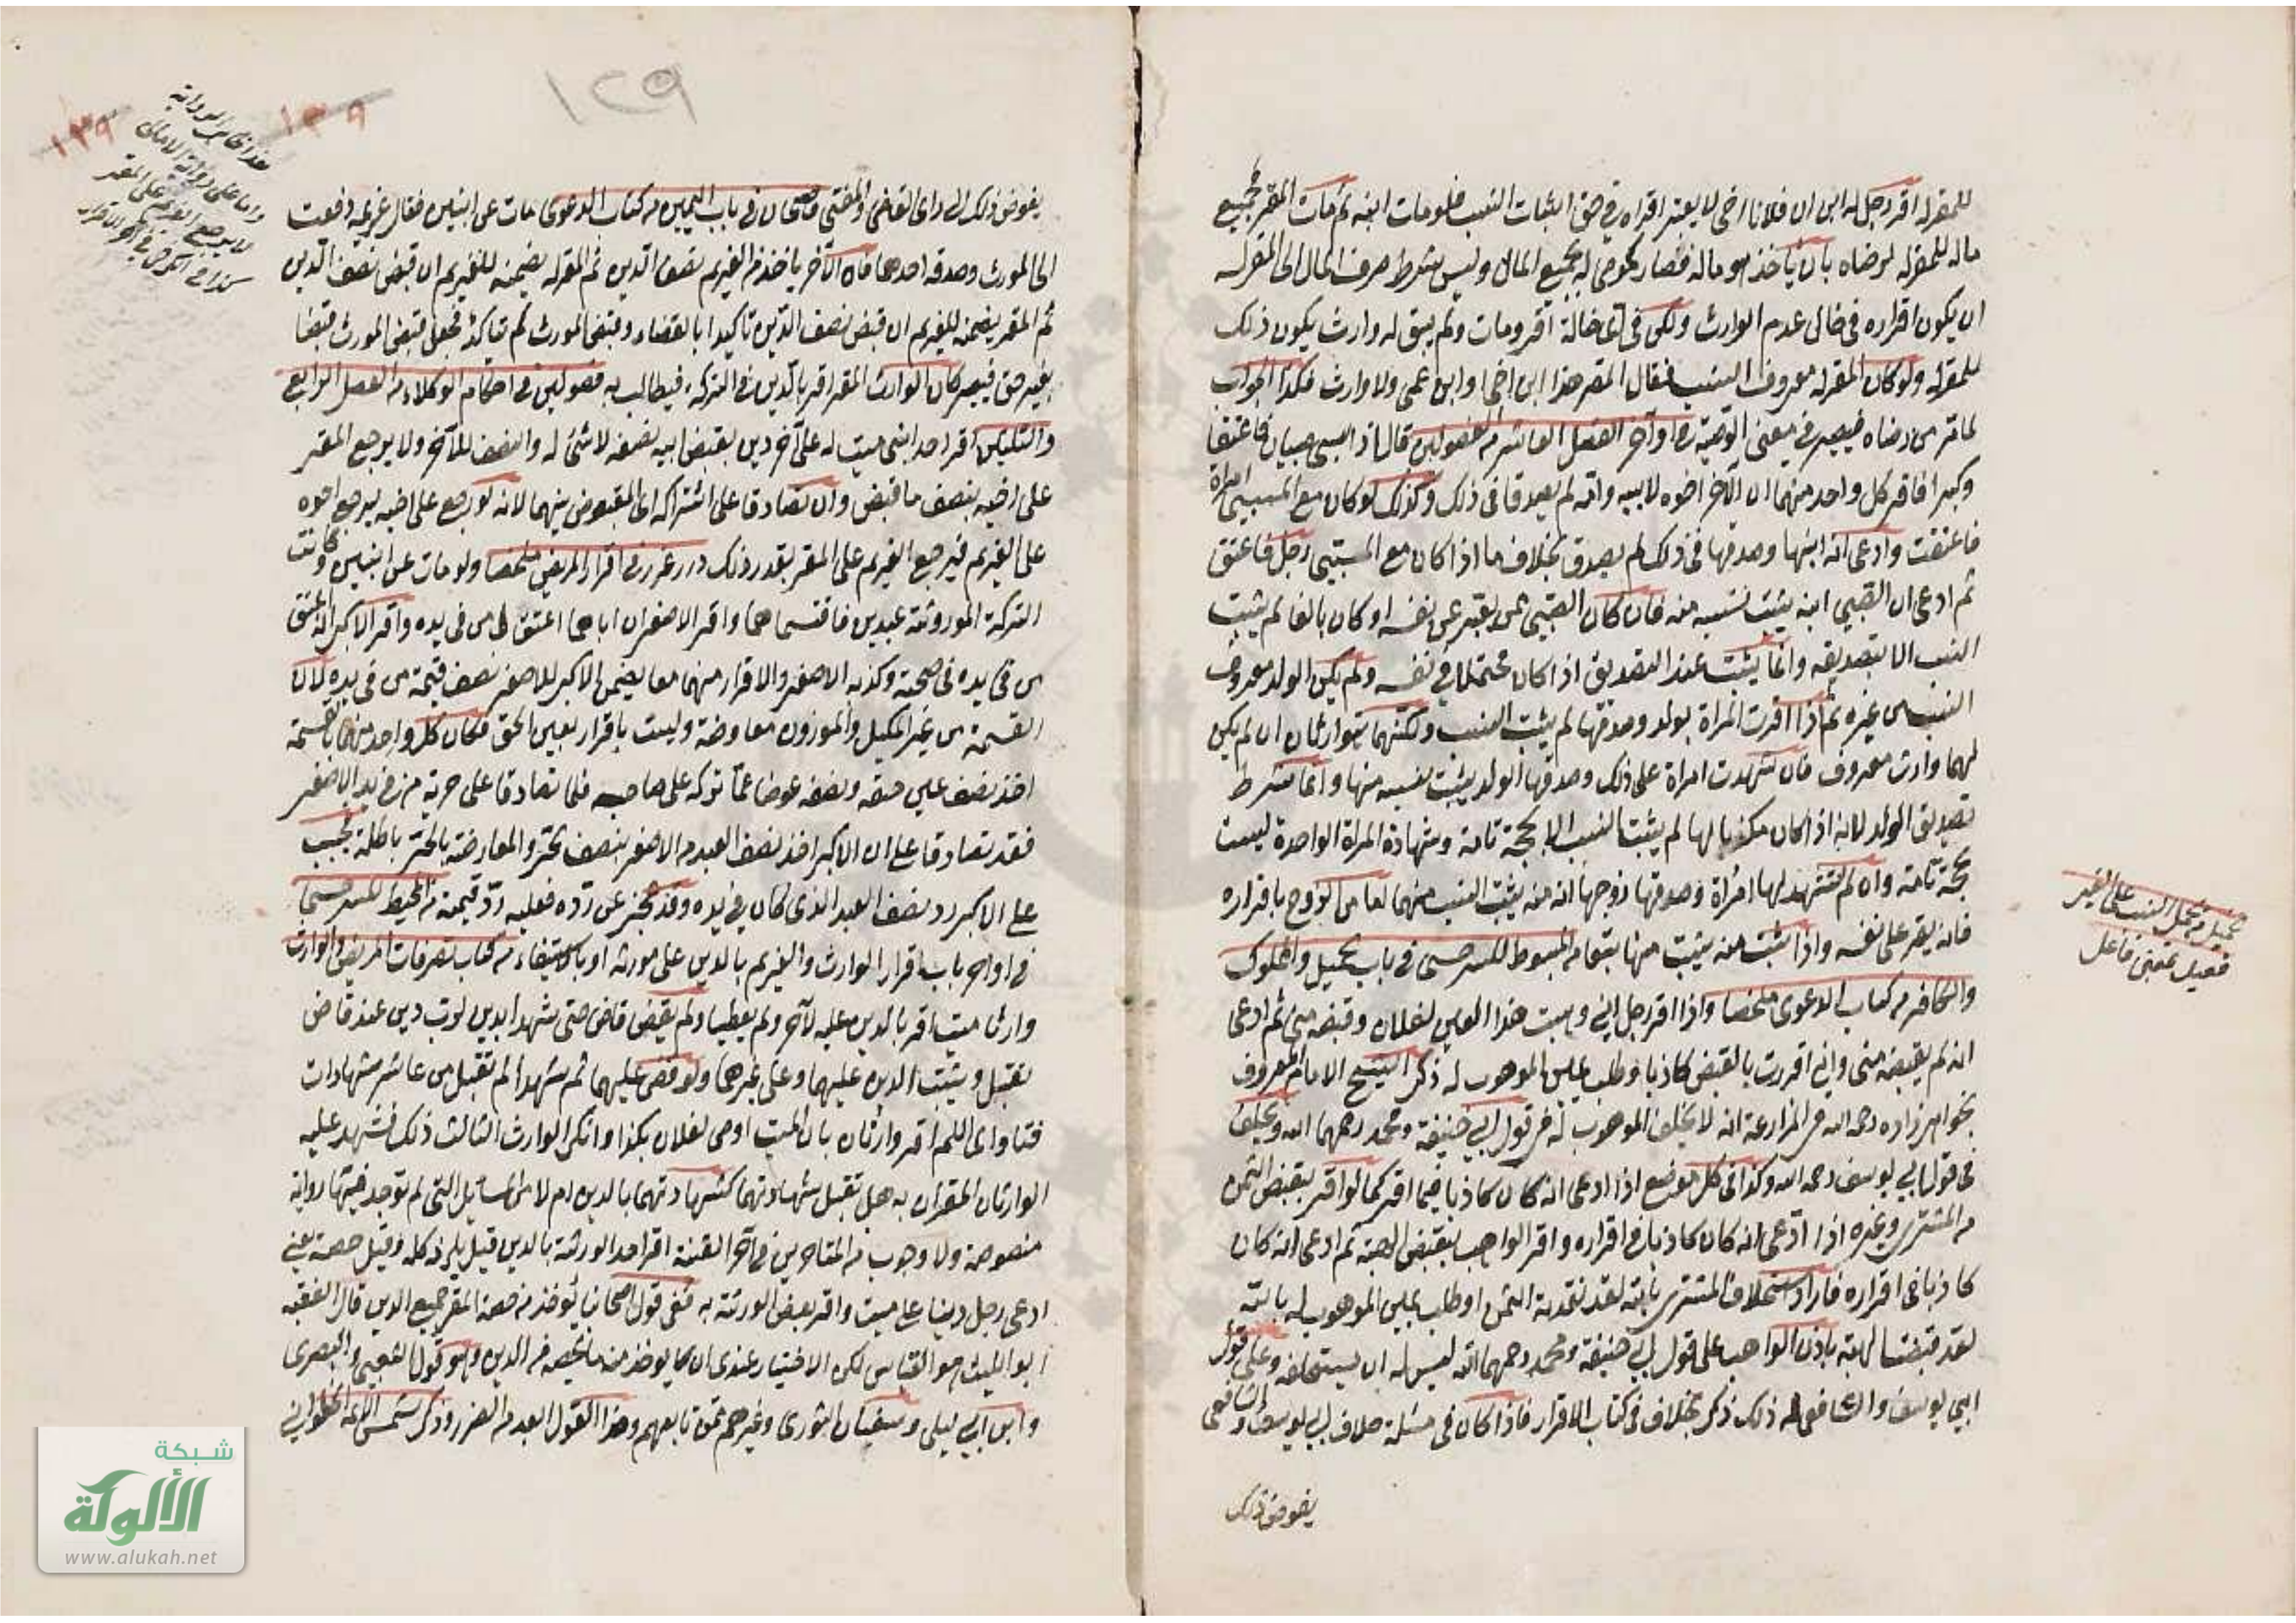 للمقر له اقر رجل له ابن ان فلانا اخي لا يعتبر اقراره في حق اثبات النسب فلو مات ابنه ثم مات المقر فجميع
ماله للمقر له لرضاه بان ياخذ هو ماله فصار كموصى له بجميع المال وليس بشرط صرف المال الى المقر له
ان يكون اقراره في حال عدم الوارث ولكن في اي حالة اقر ومات ولم يبق له وارث يكون ذلك
للمقر له ولو كان المقر له معروف النسب فقال المقر هذا ابن اخي او ابن عمي ولا وارث فكذا الجواب
لما مر من رضاه فيصير في معنى الوصية في اواخر الفصل العاشر من الفصولين قال اذا سبي صبيان فاعتقا
وكبرا فاقر كل واحد منهما ان الآخر اخوه لابيه وامه لم يصدقا في ذلك وكذلك لو كان مع المسبيين امراة
فاعتقت وادعى انه ابنها وصدقها في ذلك لم يصدق بخلاف ما اذا كان مع المسبيين رجل فاعتق
ثم ادعى ان الصبي ابنه يثبت نسبه منه فان كان الصبي ممن يعبر عن نفسه او كان بالغا لم يثبت
النسب الا بتصديقه وانما يثبت عند التصديق اذا كان محتملا في نفسه ولم يكن الولد معروف
النسب من غيره ثم اذا اقرت المراة بولد وصدقها لم يثبت النسب ولكنهما يتوارثان ان لم يكن
لهما وارث معروف فان شهدت امراة على ذلك وصدقها الولد يثبت نسبه منها وانما شرط
تصديق الولد لانه اذا كان مكذبا لها لم يثبت النسب الا بحجة تامة وشهادة المراة الواحدة ليست
بحجة تامة وان لم تشهد لها امراة وصدقها زوجها انه منه يثبت النسب منهما لان الزوج باقراره
فانه يقر على نفسه واذا ثبت منه يثبت منها بتمامه من المبسوط للسرخسي في باب الحميل والمملوك
والكافر من كتاب الدعوى ملخصا واذا اقر رجل اني وهبت هذا العين لفلان وقبضه مني ثم ادعى
انه لم يقبضه مني واني اقررت بالقبض كاذبا وطلب يمين الموهوب له ذكر الشيخ الامام المعروف
بخواهر زاده رحمه الله في المزارعة انه لا يحلف الموهوب له في قول ابي حنيفة ومحمد رحمهما الله ويحلف
في قول ابي يوسف رحمه الله وكذا في كل موضع اذا ادعى انه كان كاذبا فيما اقر كما لو اقر بقبض الثمن
من المشتري وغيره اذا ادعى انه كان كاذبا في اقراره واقر الواهب بقبض الهبة ثم ادعى انه كان
كاذبا في اقراره فاراد استحلاف المشتري بالله لقد نقدته الثمن او طلب يمين الموهوب له بالله
لقد قبضت الهبة باذن الواهب على قول ابي حنيفة ومحمد رحمهما الله ليس له ان يستحلفه وعلى قول
ابي يوسف والشافعي له ذلك ذكر الخلاف في كتاب الاقرار فاذا كان في مسئلة خلاف ابي يوسف والشافعي
يفوض ذلك
حميل من يحمل النسب على الغير
فعيل بمعنى فاعل
١٢٩
١٣٩
١٣٩
هذا ظاهر الرواية
واما على رواية الامالي
لا يرجع الغريم على المقر
يفوض ذلك الى راى القاضي والمفتي قاضيخان في باب اليمين من كتاب الدعوى مات عن ابنين فقال غريمه دفعت
الى المورث وصدقه احدهما فان الآخر ياخذ من الغريم نصف الدين ثم المقر له يضمنه للغريم ان قبض نصف الدين
ثم المقر يضمنه للغريم ان قبض نصف الدين تاكيدا بالقضاء وقبض المورث لم يتاكد فجعل قبض المورث قبضا
بغير حق فيصير كان الوارث المقر اقر بالدين في التركة فيطالب به فصولين في احكام الوكلاء من الفصل الرابع
والثلثين اقر احد ابني ميت له على آخر دين بقبض ابيه نصفه لا شئ له والنصف للآخر ولا يرجع المقر
على اخيه بنصف ما قبض وان تصادقا على اشتراك المقبوض بينهما لانه لو رجع على اخيه يرجع اخوه
على الغريم فيرجع الغريم على المقر بقدر ذلك درر غرر في اقرار المريض ملخصا ولو مات عن ابنين وكانت
التركة الموروثة عبدين فاقتسماهما واقر الاصغر ان اباهما اعتق من في يده واقر الاكبر انه اعتق
من في يده في صحته وكذبه الاصغر والاقرار منهما معا يضمن الاكبر للاصغر نصف قيمة من في يده لان
القسمة من غير المكيل والموزون معاوضة وليست باقرار بعين الحق فكان كل واحد منهما بالقسمة
اخذ نصف عين حقه ونصفه عوضا عما تركه على صاحبه فلما تصادقا على حرية من في يد الاصغر
فقد تصادقا على ان الاكبر اخذ نصف العبد من الاصغر بنصف حر والمعاوضة بالحر باطلة فيجب
على الاكبر رد نصف العبد الذي كان في يده وقد عجز عن رده فعليه رد قيمته من المحيط للسرخسي
في اواخر باب اقرار الوارث والغريم بالدين على مورثه او بالاستيفاء من كتاب تصرفات المريض والوارث
وارثا ميت اقر بالدين عليه لآخر ولم يعطيا ولم يقض قاض حتى شهدا بدين لرب دين عند قاض
تقبل ويثبت الدين عليهما وعلى غيرهما ولو قضى عليهما ثم شهدا لم تقبل من عاشر شهادات
فتاوى اللم اقر وارثان بان الميت اوصى لفلان بكذا وانكر الوارث الثالث ذلك فشهد عليه
الوارثان المقران به هل تقبل شهادتهما كشهادتهما بالدين ام لا من المسايل التي لم توجد فيها رواية
منصوصة ولا وجوب من المتاخرين في آخر القنية اقر احد الورثة بالدين قيل يلزمه كله وقيل حصته يعني
ادعى رجل دينا على ميت واقر بعض الورثة به ففي قول اصحابنا يؤخذ من حصة المقر جميع الدين قال الفقيه
ابو الليث هو القياس لكن الاختيار عندي ان يؤخذ منه ما يخصه من الدين وهو قول الشعبي والبصري
وابن ابي ليلى وسفيان الثوري وغيرهم ممن تابعهم وهذا القول ابعد من الضرر وذكر شمس الائمة الحلواني
شبكة
الألوكة
www.alukah.net